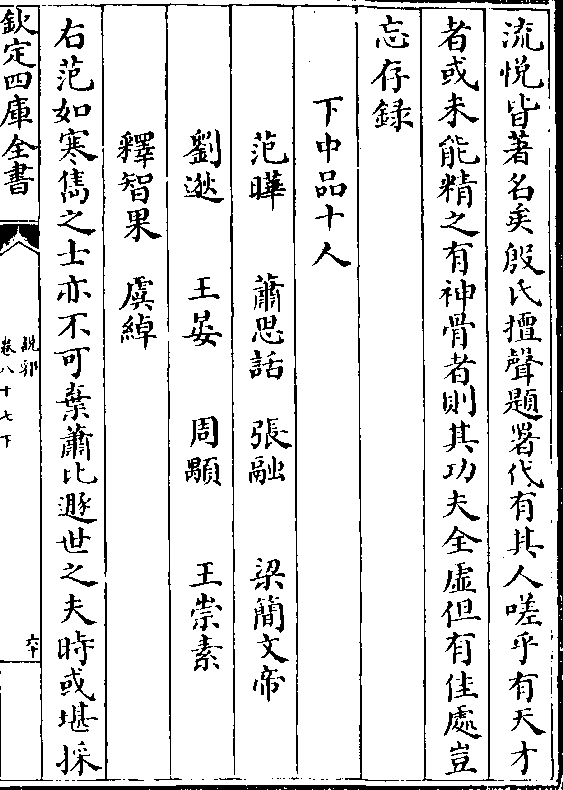 流悦皆著名矣殷氏擅聲題署代有其人嗟乎有天才
者或未能精之有神骨者則其功夫全虛但有佳處豈
忘存録
下中品十人
范曄 蕭思話 張融 梁簡文帝
劉逖 王晏 周顒 王崇素
釋智果 虞綽
右范如寒儁之士亦不可棄蕭比遯世之夫時或堪採
欽定四庫全書
說郛
卷八十七下
六十